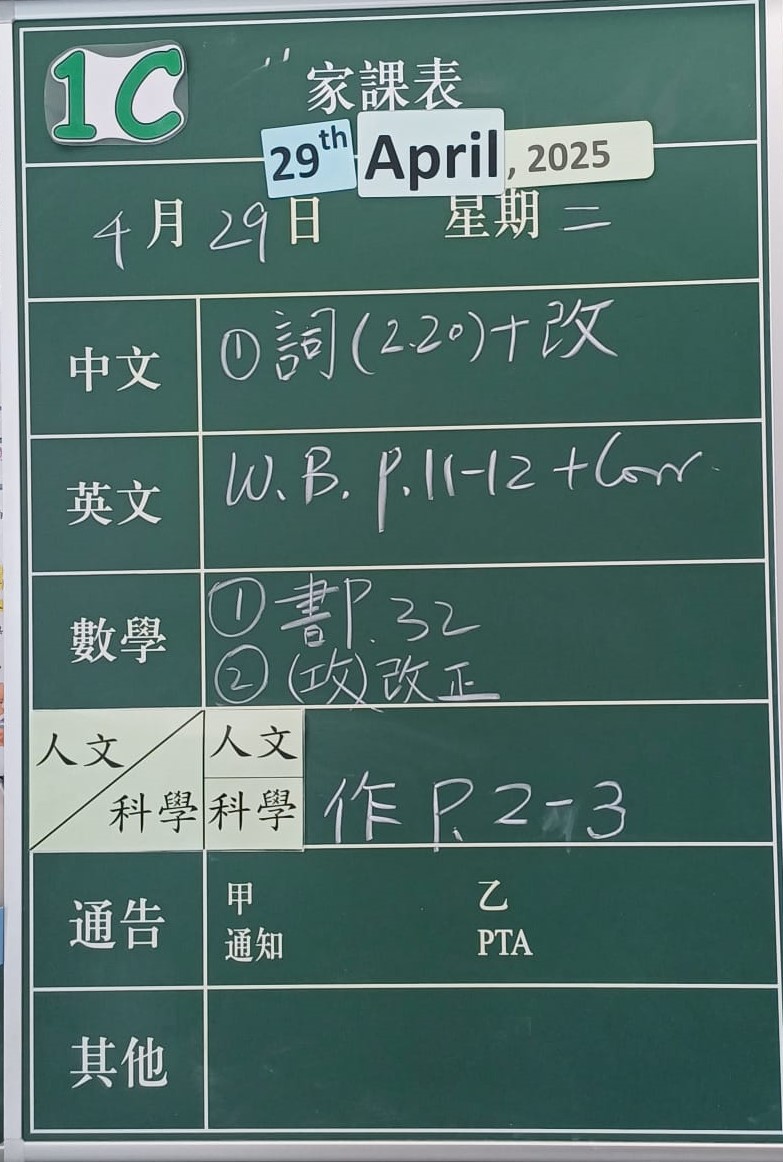 1C
家課表
29th April, 2025
4月29日 星期二
中文 ①詞(2.20)+改
英文 W.B. P.11-12 +Corr.
數學 ①書P.32
②(攻)改正
人文
科學
人文
科學 作 P.2-3
通告 甲 乙
通知 PTA
其他